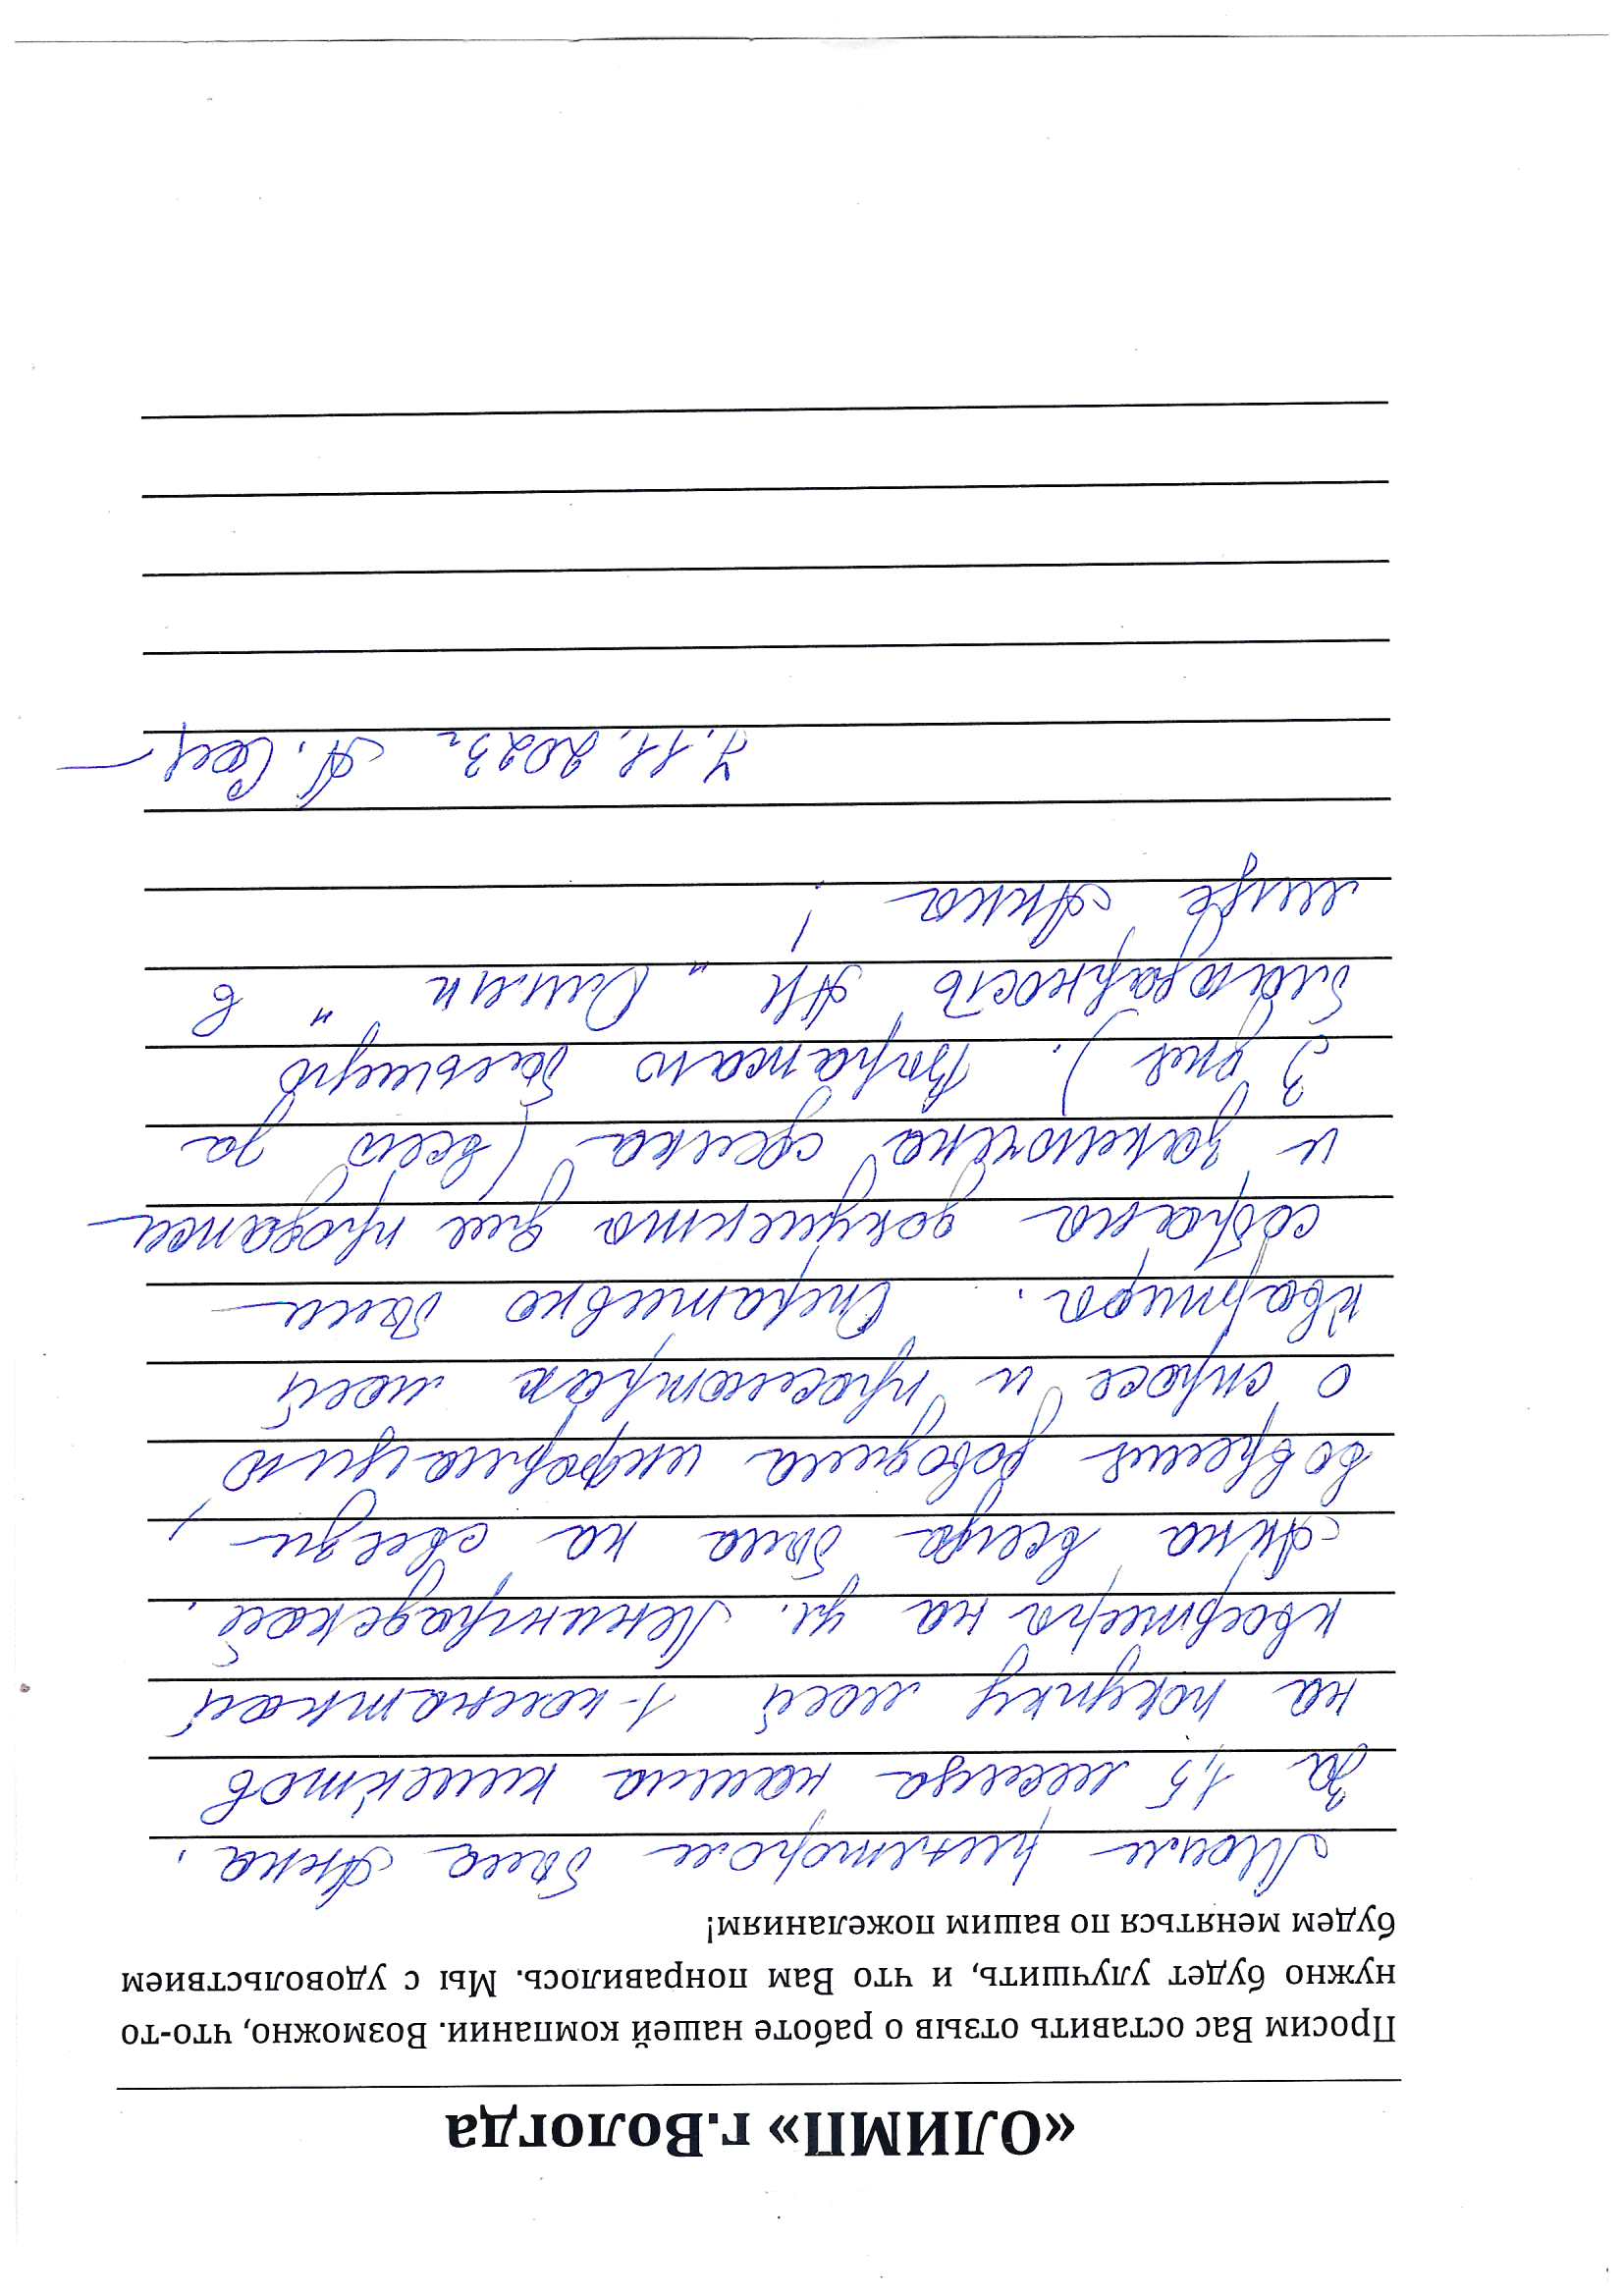 «ОЛИМП» г.Вологда
Просим Вас оставить отзыв о работе нашей компании. Возможно, что-то
нужно будет улучшить, и что Вам понравилось. Мы с удовольствием
будем меняться по вашим пожеланиям!
Моим риэлтором была Анна.
За 1,5 месяца нашла клиентов
на покупку моей 1-комнатной
квартиры на ул. Ленинградской.
Анна всегда была на связи,
вовремя доводила информацию
о спросе и просмотрах моей
квартиры. Оперативно были
собраны документы для продажи
и заключена сделка (всего за
3 дня). Выражаю большую
благодарность АН „Олимп" в
лице Анны!
7.11.2023г А.